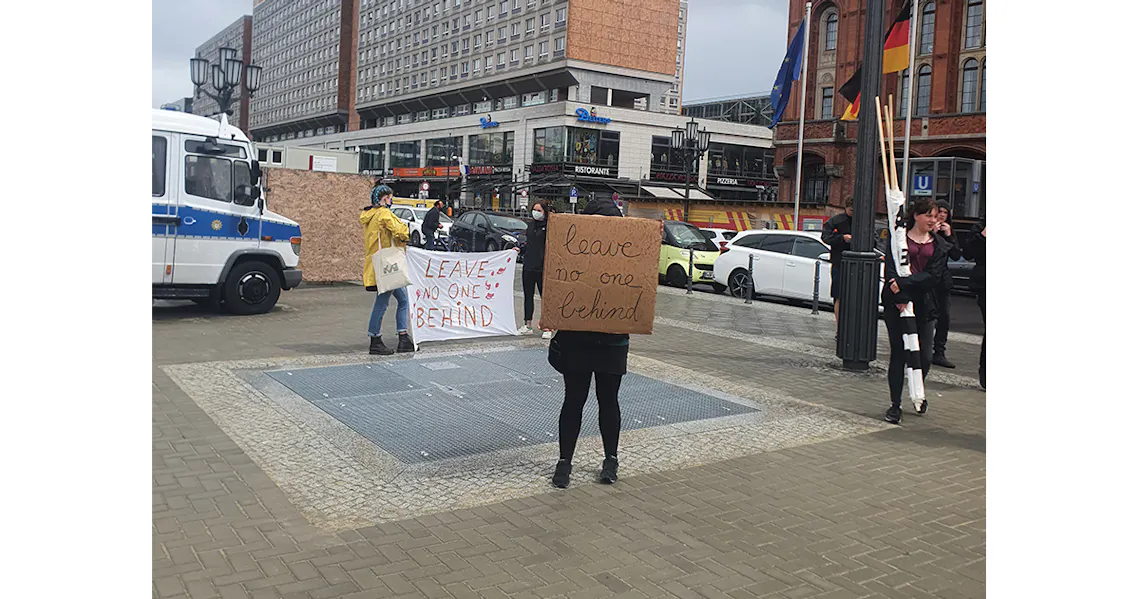 leave
no one
behind
LEAVE
NO ONE
BEHIND
RISTORANTE
PIZZERIA
U